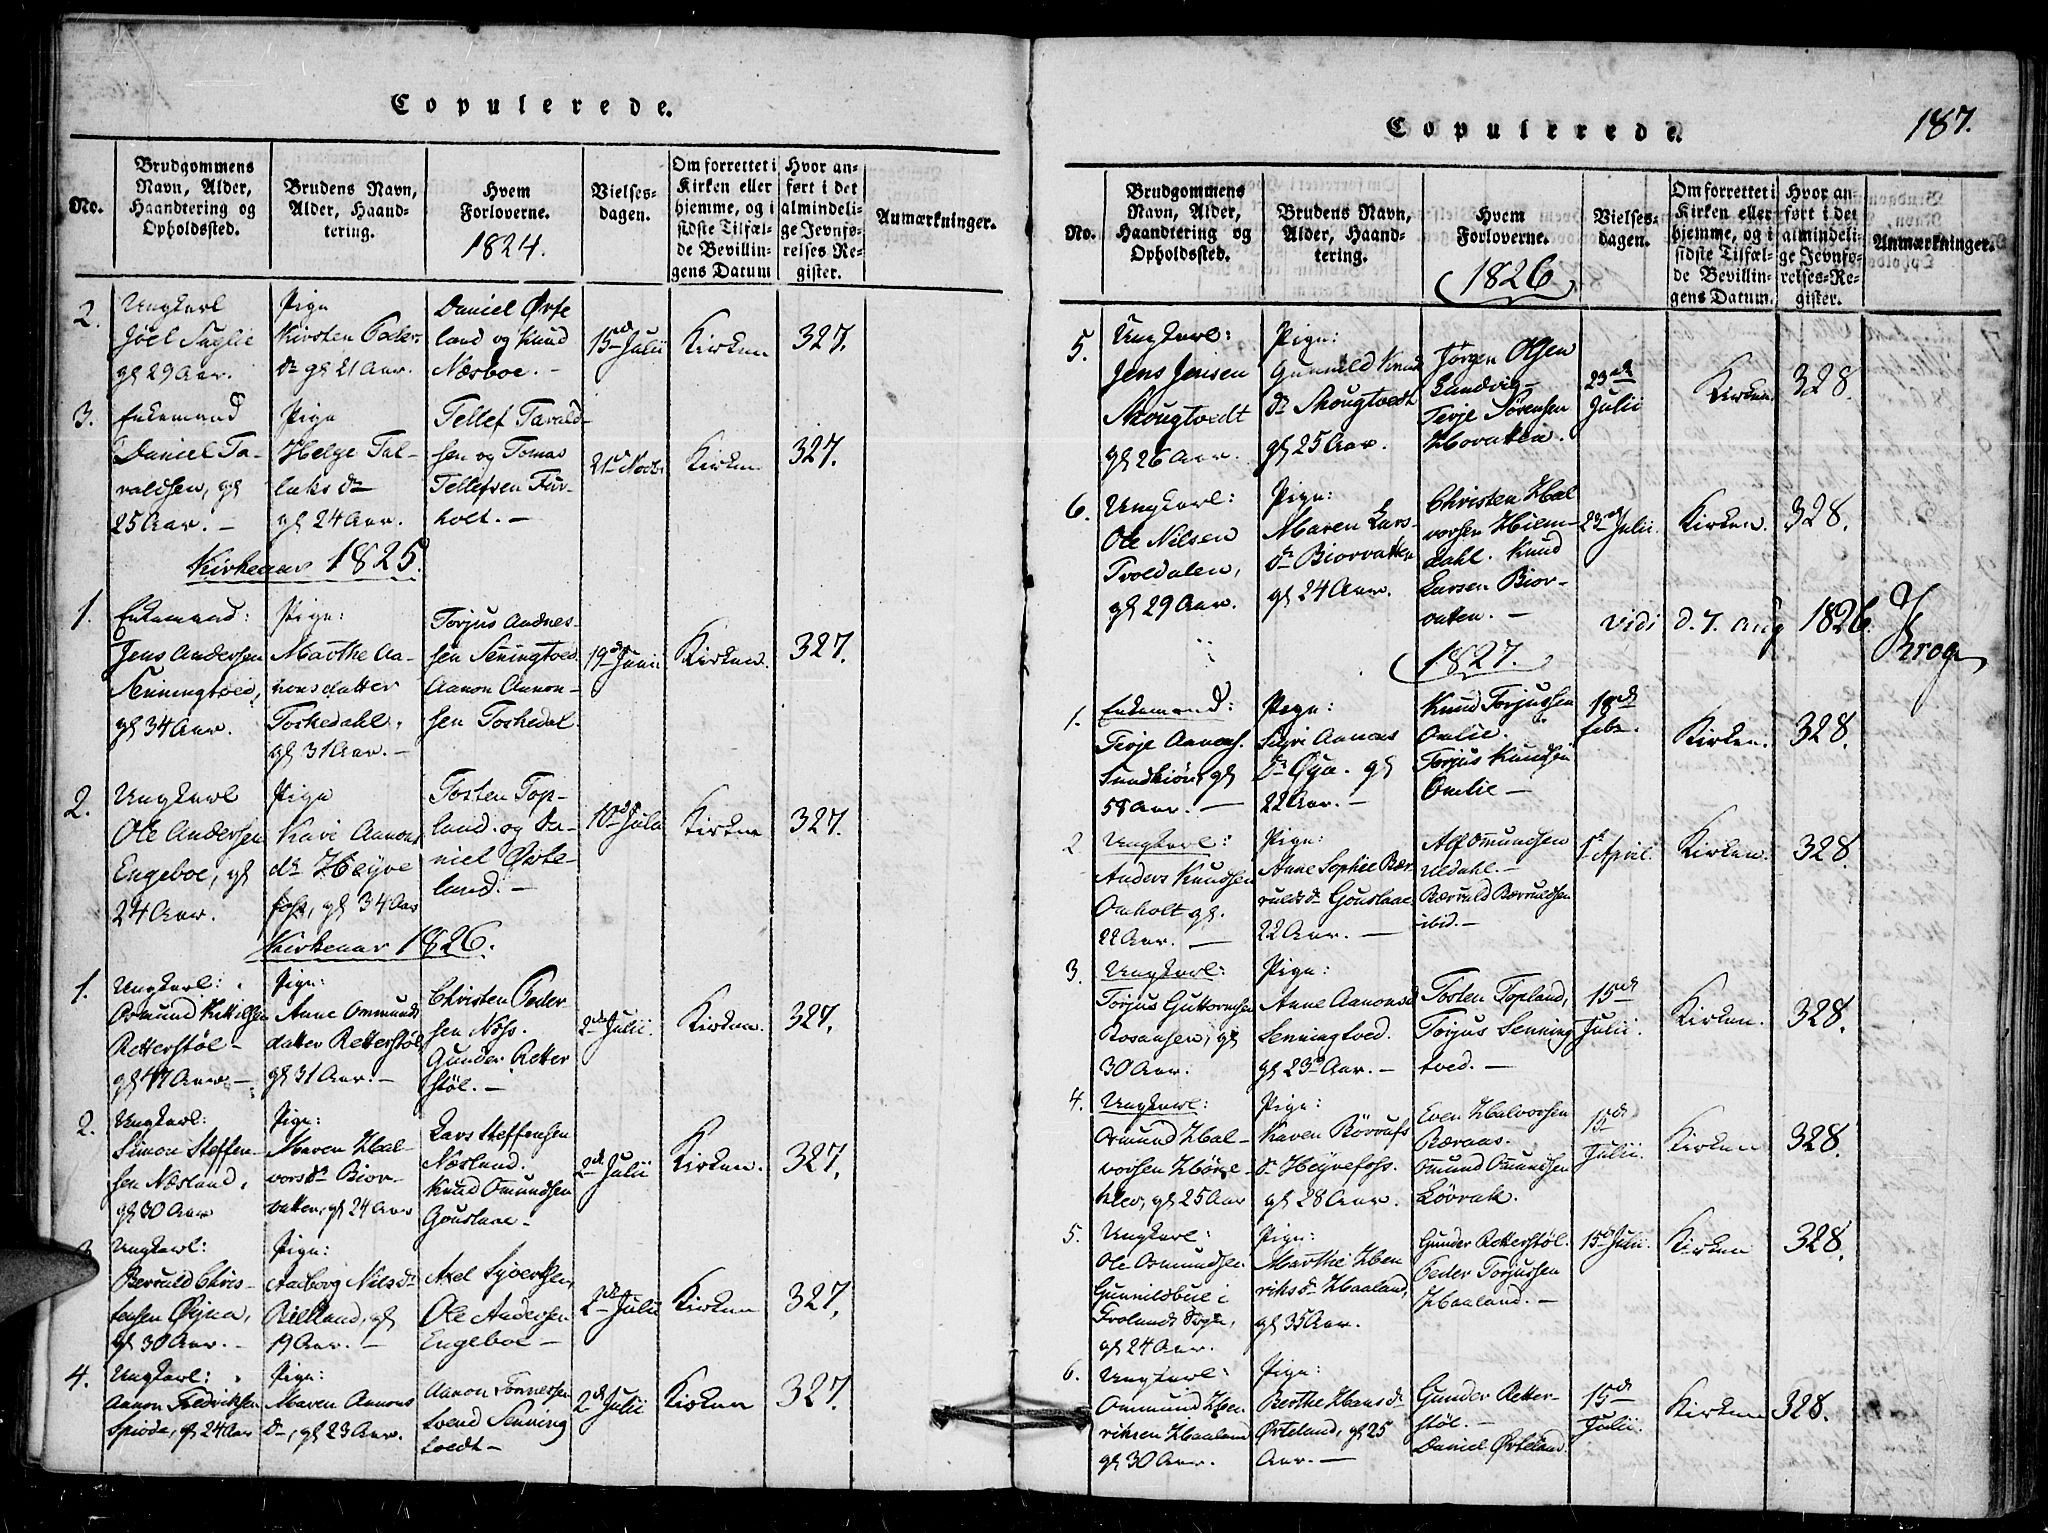 Copulerede.
No.
Brudgommens Navn, Alder, Haandtering og Opholdssted.
Brudens Navn, Alder, Haandtering.
Hvem Forloverne.
1824.
Vielsesdagen.
Om forrettet i Kirken eller hjemme, og i sidste Tilfælde Bevillingens Datum
Hvor anført i det almindelige Jevnførelses Register.
Anmærkninger.
2.
Ungkarl
Joel Saglie
gl 29 Aar.
Pige
Kirsten Peders
dr gl 21 Aar.
Daniel Ørte
land og Knud
Næsboe. -
15de Julii
Kirken
327.
3.
Enkemand
Daniel Ta-
raldsen, gl
25 Aar. -
Pige
Helge Tal-
laks dr
gl 24 Aar.
Tellef Tarald-
sen og Tomas
Tellefsen Fur-
holt. -
21de Novbr
Kirken
327.
Kirkeaar 1825.
1.
Enkemand:
Jens Andersen
Senningtved,
gl 34 Aar.
Pige:
Marthe Aa-
nonsdatter
Toskedahl,
gl 31 Aar. -
Torjus Andnes-
sen Seningtved
Aanon Aanon-
sen Toskedal
19de Junii
Kirken.
327.
2.
Ungkarl
Ole Andersen
Engeboe, gl
24 Aar.
Pige
Kari Aanons
dr Heyve
foss, gl 34 Aar
Tosten Top-
land og Da-
niel Ørte-
land. -
10de Julii
Kirken
327.
Kirkeaar 1826.
1.
Ungkarl:
Osmund Kittilsen
Retterstøl -
gl 47 Aar -
Pige:
Anne Ommunds
datter Retterstøl
gl 31 Aar. -
Christen Peder
sen Næss.
Gunder Retter
støl. -
2de Julii.
Kirken.
327.
2.
Ungkarl:
Simon Steffen-
sen Næsland,
gl 30 Aar
Pige:
Maren Hal-
vorsdr Bior-
vatten, gl 24 Aar
Lars Steffensen
Næsland.
Knud Omundsen
Gouslaae -
2de Julii
Kirken.
327.
3.
Ungkarl:
Berruld Chris-
tensen Øyna,
gl 30 Aar. -
Pige:
Aasborg Nilsdr
Rislland, gl
19 Aar. -
Axel Syvertsen,
Ole Andersen
Engeboe -
2de Julii
Kirken
327.
4.
Ungkarl:
Aanon Fredriksen
Spiode, gl 24 Aar
Pige:
Maren Aanons
dr, gl 23 Aar.
Aanon Tønnessen
Svend Senning
tvedt -
2de Julii
Kirken
327.
Copulerede.
187.
No.
Brudgommens Navn, Alder, Haandtering og Opholdssted.
Brudens Navn, Alder, Haandtering.
Hvem Forloverne.
1826
Vielsesdagen.
Om forrettet i Kirken eller hjemme, og i sidste Tilfælde Bevillingens Datum.
Hvor anført i det almindelige Jevnførelses-Register.
Anmærkninger.
5.
Ungkarl:
Jens Jensen
Skougtvedt
gl 26 Aar.
Pige:
Gunnild Knud
dr Skougtvedt
gl 25 Aar.
Jørgen Olsen
Sandvig -
Terje Sørensen
Hovatten.
23de
Julii
Kirken.
328.
6.
Ungkarl:
Ole Nilsen
Troldalen,
gl 29 Aar.
Pige:
Maren Lars-
dr Biorvatten
gl 24 Aar.
Christen Hal
vorsen Hiem-
dahl. Knud
Larsen Bior-
vatten. -
23de Julii.
Kirken.
328.
Vidi d. 7. Aug 1826.
Krog
1827.
1.
Enkemand:
Terje Aanons.
Sundtiøn, gl
58 Aar. -
Pige:
Signe Aanons
dr Øya. gl
22 Aar. -
Knud Torjussen
Omlie.
Torjus Knudsen
Omlie -
18de
febr.
Kirken.
328.
2
Ungkarl:
Anders Knudsen
Omholt gl.
22 Aar. -
Pige:
Anne Sophie Bær
ruldsdr Gouslaae
22 Aar. -
Alf Omundsen
Uldahl. -
Bærruld Bærruldsen
ibid. -
1de April.
Kirken.
328.
3.
Ungkarl:
Torjus Guttormsen
Rosaasen, gl
30 Aar.
Pige:
Anne Aanonsd
Senningtved.
gl 23 Aar. -
Tosten Topland,
Torjus Senning
tved. -
15de
Julii.
Kirken.
328.
4.
Ungkarl:
Osmund Hal-
vorsen
gl 25 Aar
Pige:
Karen Børrufs
dr Heyvefoss.
gl 28 Aar.
Even Halvorsen
Bæraas.
Omund Omundsen
Løvrak.
15de
Julii.
Kirken
328.
5.
Ungkarl:
Ole Osmundsen
Gunnildsbue i
Frolands Sogn,
gl 24 Aar.
Pige:
Marthe Hen
riksdr Haaland,
gl 35 Aar.
Gunder Retterstøl.
Peder Torjussen
Haaland. -
15de Julii.
Kirken
328.
6.
Ungkarl:
Ommund Hen-
riksen Haaland
gl 30 Aar.
Pige:
Berthe Hansdr
Ørteland, gl 25
Aar. -
Gunder Retter-
støl. -
Daniel Ørteland.
15de
Julii.
Kirken
328.